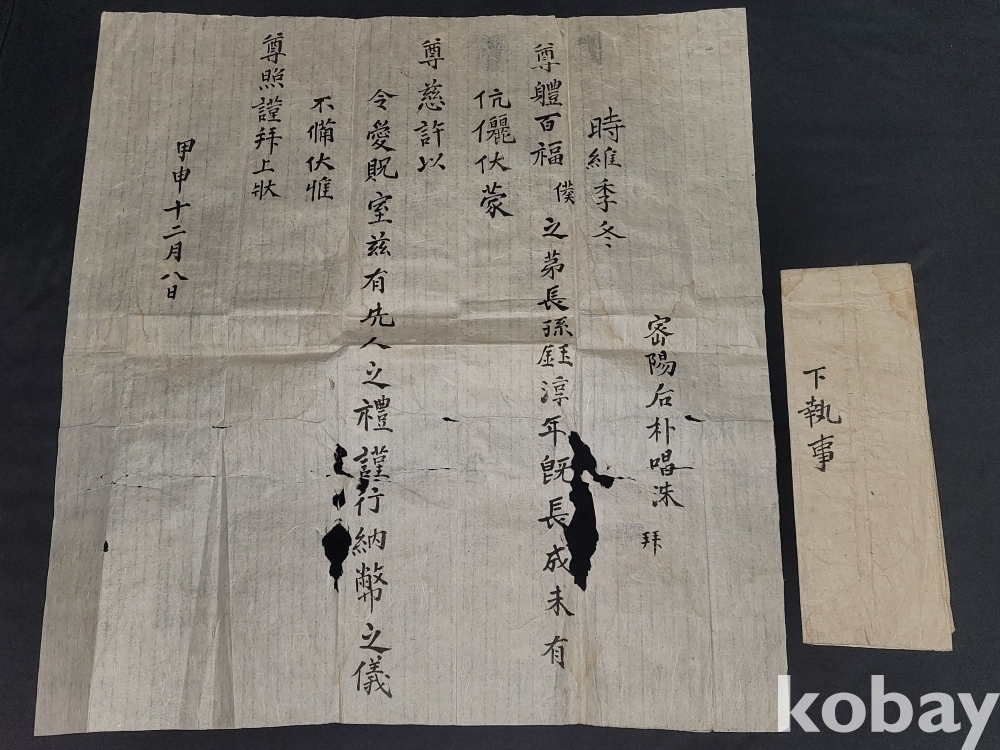 密陽后朴唱洙 拜
時維季冬
尊體百福 僕之苐長孫鈺淳年旣長成未有
伉儷伏蒙
尊慈許以
令愛貺室玆有先人之禮謹行納幣之儀
不備伏惟
尊照謹拜上狀
甲申十二月八日
下執事
kobay